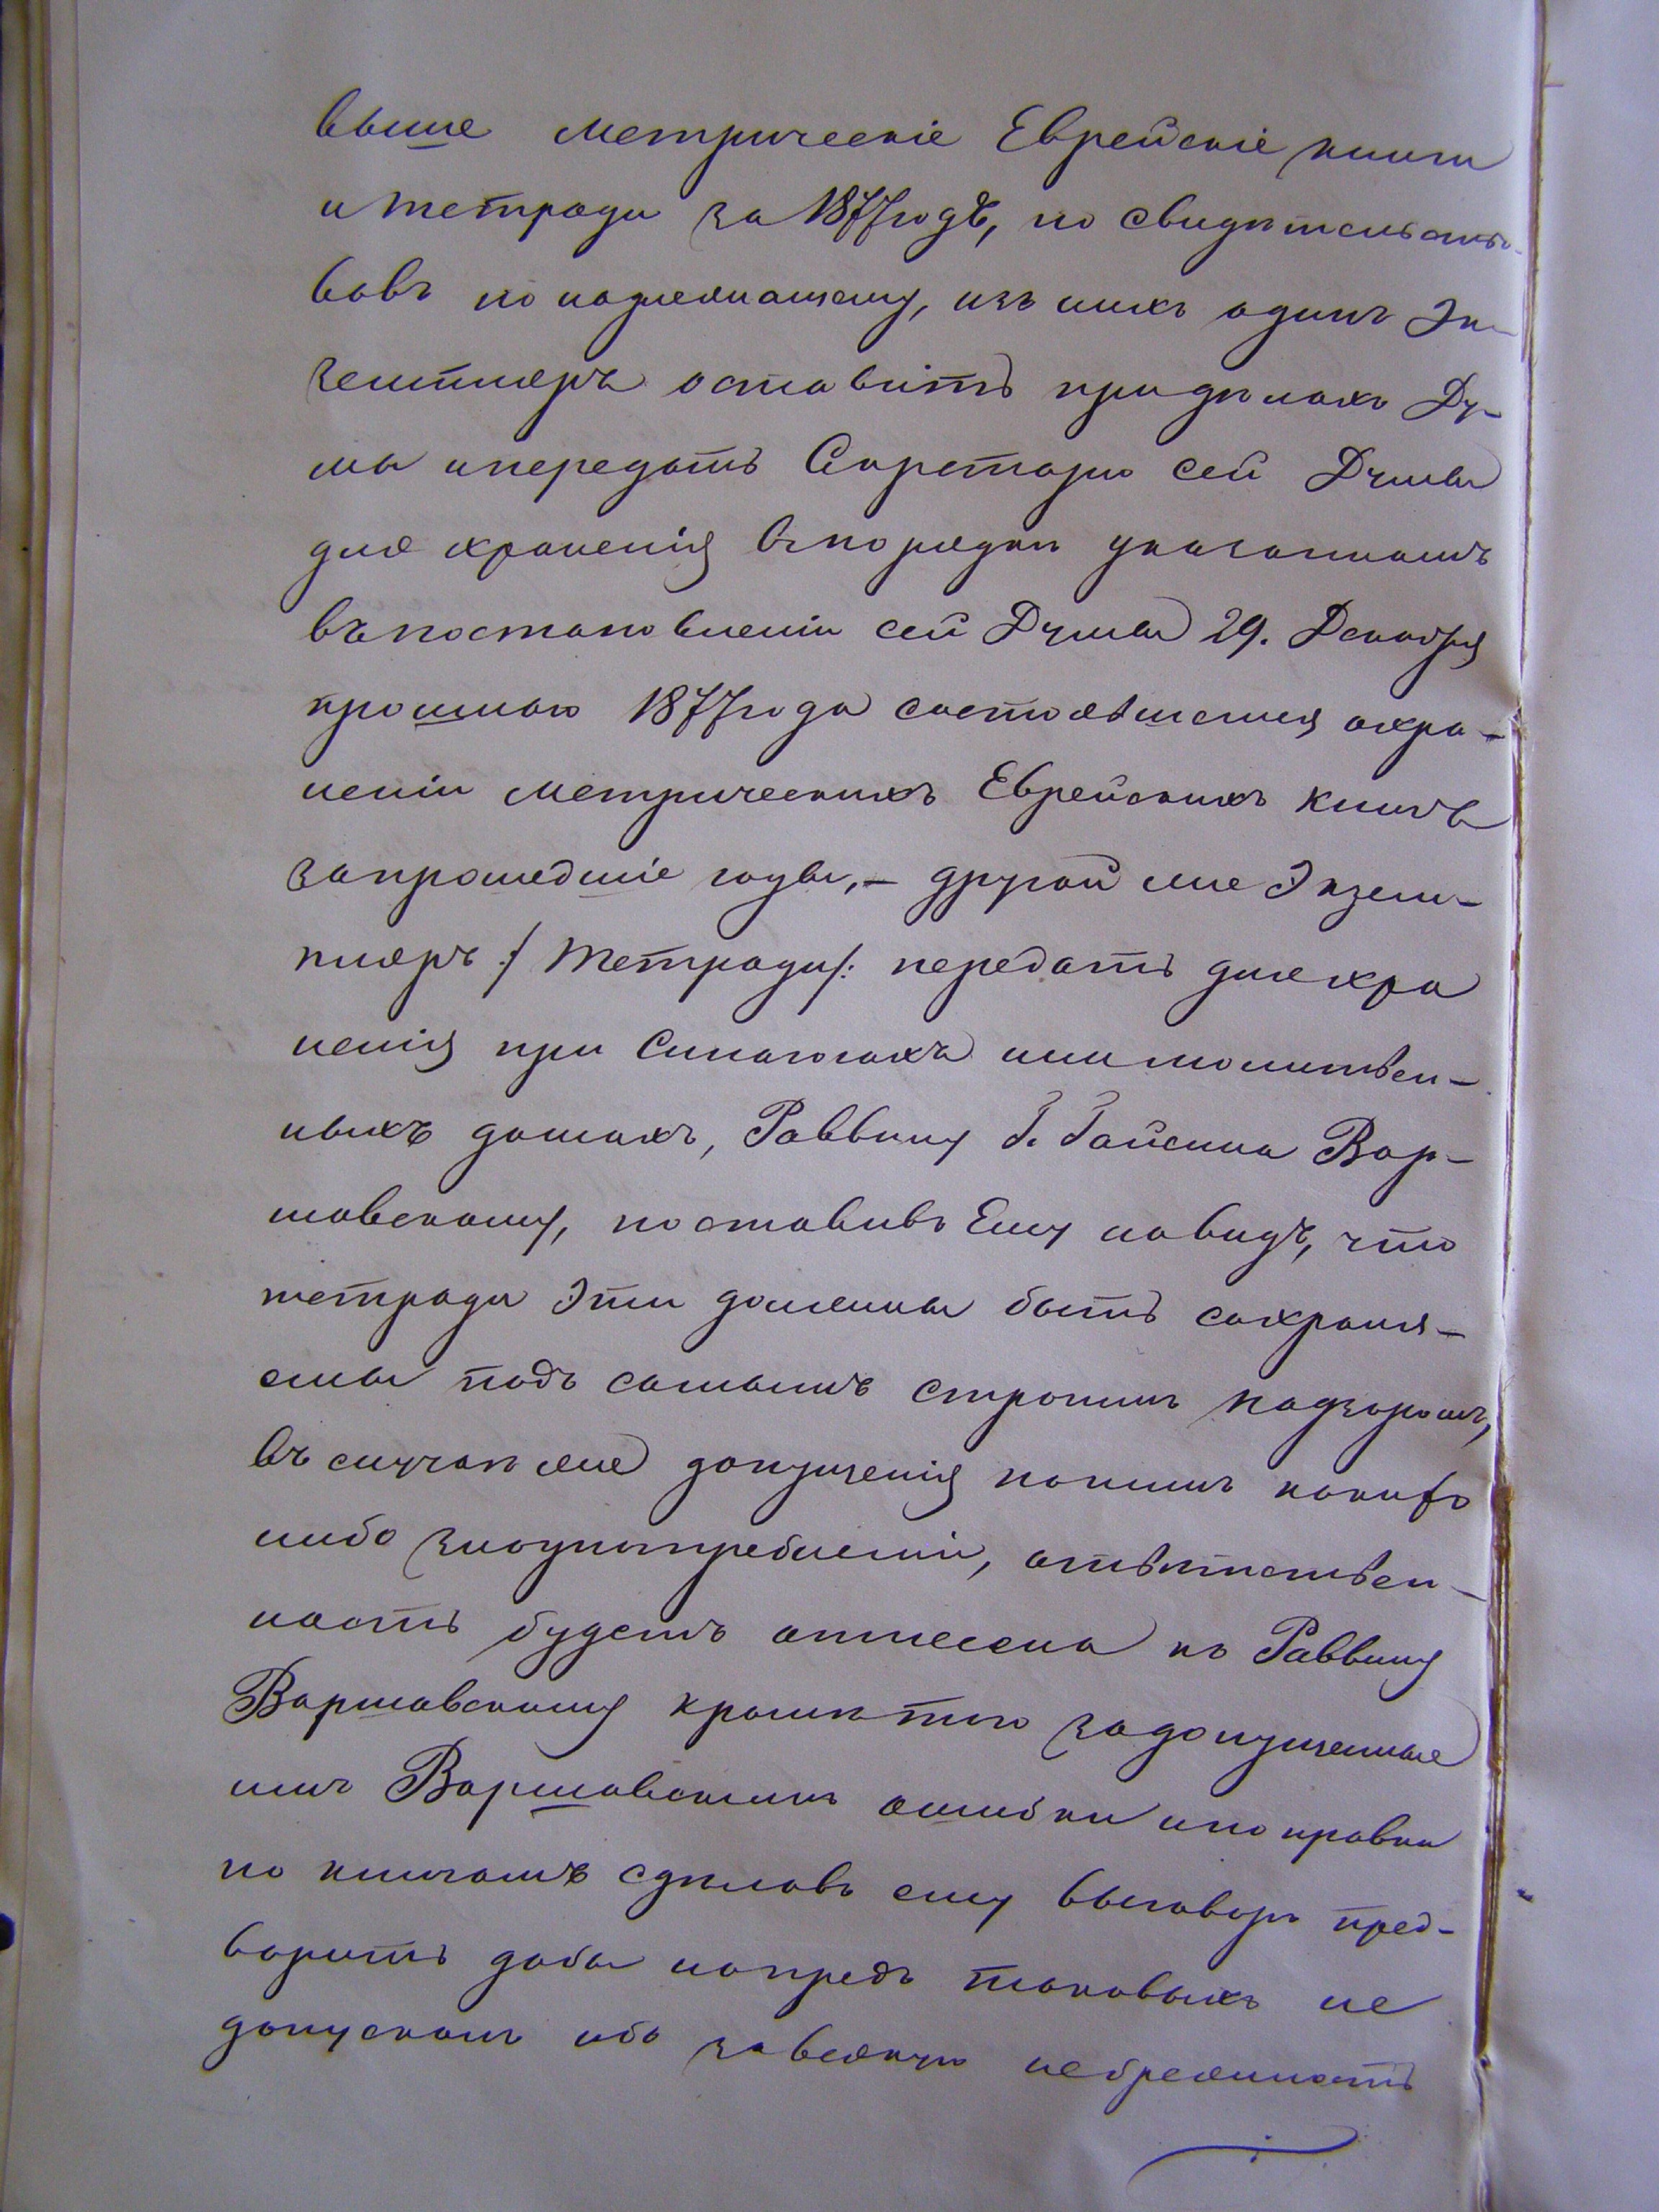 выше метрическіе Еврейскіе книги
и тетради за 1877 годъ, по свидѣтельство-
вавъ по надлежащему, изъ нихъ одинъ Эк-
земпляръ оставить придѣлахъ Ду-
мы ипередать Секретарю сей Думы
для храненія впорядкѣ указанномъ
въпостановленіи сей Думы 29. Декабря
прошлаго 1877 года состоявшемся охра-
неніи метрическихъ Еврейскихъ Книгъ
запрошедшіе годы, – другой же Экзем-
пляръ /: тетради /: передать дляхра
ненія при Синагогахъ или молитвен-
ныхъ домахъ, Раввину Г. Гайсина Вар-
шавскому, поставивъ Ему навидъ, что
тетради Эти должны быть сохраня-
емы подъ самымъ строгимъ надзоромъ,
въ случаѣ же допущенія какимъ какихъ
либо злоупотребленій, отвѣтствен-
ность будетъ отнесена къ Раввину
Варшавскому кромѣ того задопущенные
имъ Варшавскимъ ошибки ипоправки
по книгамъ сдѣлавъ ему выговоръ пред-
варить дабы напредъ таковыхъ не
допускалъ ибо завсякую небрежность